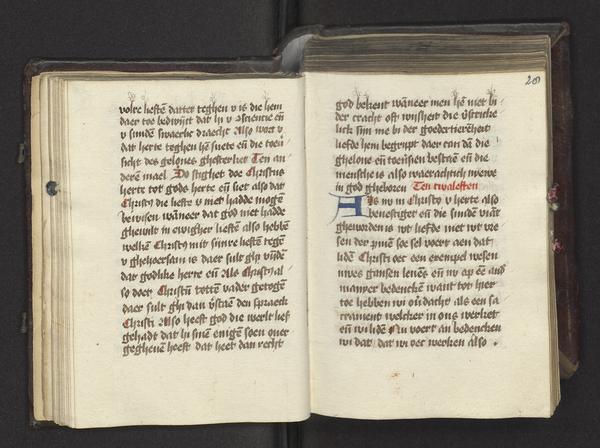 volre lieften datter teghen v is die hem
daer toe bedwijct dat hi v
v sunden swaerlic draecht Also wort v
dat herte teghen hē suete en̄ die toeu
sicht des geloues ghesterket Ten an
deren mael. So stighet doe Christus
herte tot gods herte en̄ siet also dat
Christus die liefte v niet hadde mogen̄
bewisen wanneer dat god niet hadde
ghewilt in ewigher lieften also hebbē
welken̄ Christus mit sinre lieftē tegen̄
v ghehoersam is daer sult ghi vinden̄
dat godlike herte en̄ Als Christus al
so doer Christū totten vader getogen̄
daer sult ghi dan vstaen den spraeck
Christi Also heeft god die werlt lief
gehadt dat hi sinen enigen̄ soen ouer
gegheuen heeft dat heet dan recht
20
god bekent wanneer men hē niet bi
der cracht oft wijsheit die
lick sun me bi der goedertierēheit
liefde hem begript daer can dā die
ghelone en̄ toeuisen bestaen en̄ die
mensche is also waerachtich niewe
in god gheboren Ten twalesten
Als nv in Christo v herte also
beuestiget en̄ die sunde viāt
gheworden is wt liefde niet wt vre
sen der pinē soe sel voert aen dat
lidē Christi oec een exempel wesen
uwes gansen leuens en̄ nv op eē and
manyer bedenckē want tot hier
toe hebben wi
crament welcker in ons werket
en̄ wi lidē Nu voert an bedencken
wi dat dat wi oec werken also.